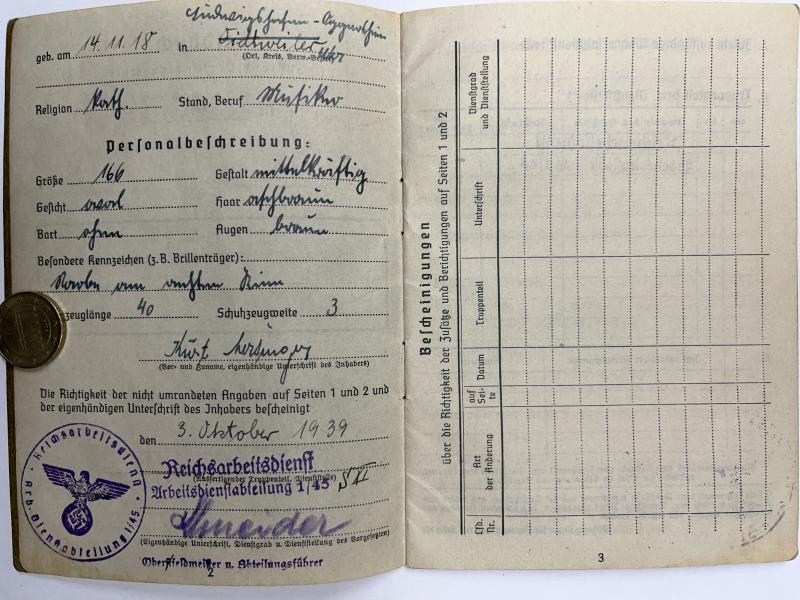 Ludwigshafen-Oggersheim
geb. am 14.11.18 in
(Ort, Kreis, Verw.-Bezirk)
Religion kath. Stand, Beruf Musiker
Personalbeschreibung:
Größe 166 Gestalt mittelkräftig
Gesicht oval Haar aschbraun
Bart ohne Augen braun
Besondere Kennzeichen (z.B. Brillenträger):
Narbe am rechten Kinn
zeuglänge 40 Schuhzeugweite 3
Kurt
(Vor- und Zuname, eigenhändige Unterschrift des Inhabers)
Die Richtigkeit der nicht umrandeten Angaben auf Seiten 1 und 2 und
der eigenhändigen Unterschrift des Inhabers bescheinigt
den 3. Oktober 1939
Reichsarbeitsdienst
(Ausfertigender Truppenteil, Dienststelle)
Arbeitsdienstabteilung 1/45
Schneider
(Eigenhändige Unterschrift, Dienstgrad u. Dienststellung des Vorgesetzten)
Oberstfeldmeister u. Abteilungsführer
2
Reichsarbeitsdienst
Arb.-Dienstabteilung 1/45
Bescheinigungen
über die Richtigkeit der Zusätze und Berichtigungen auf Seiten 1 und 2
Lfd. Nr.
Art der Änderung
auf Seite
Datum
Truppenteil
Unterschrift
Dienstgrad und Dienststellung
3